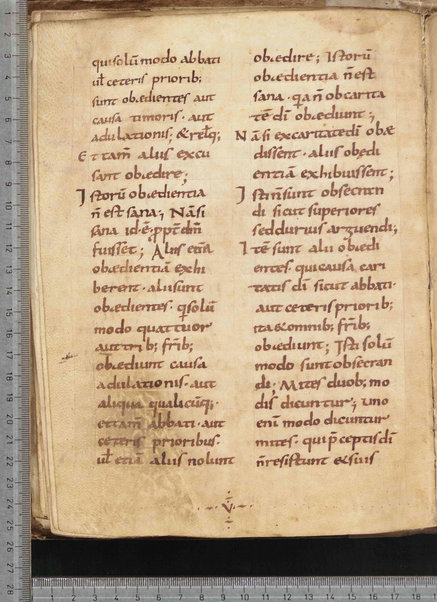 qui solū modo abbati
uł ceteris priorib;
sunt obædientes aut
causa timoris · aut
adulationis; & relq;
Et tam̄ aliis excu
sant obædire;
Istorū obædientia
n̄ est sana; Nā si
sana id ÷ pp̄t dm̄
fuisset; Aliis etiā
obædientiā exhi
berent · alii sunt
obædientes · q solū
modo quattuor
aut trib; frīb;
obædiunt causa
adulationis · aut
aliqua qualicūq;
et tam̄ abbati · aut
ceteris prioribus ·
uł etiā aliis nolunt
obædire; Istorū
obædientia n̄ est
sana · q a n̄ ob carita
tē dī obædiunt;
Nā si ex caritate dī obæ
dissent · aliis obedi
entiā exhibuissent;
Isti n̄ sunt obsecran
di sicut superiores
sed durius arguendi;
Itē sunt alii obædi
entes · qui causa cari
tatis dī sicut abbati ·
aut ceteris priorib;
ita & omnib; frīb;
obædiunt; Isti solū
modo sunt obsecran
di · Mites duob; mo
dis dicuntur; uno
eni modo dicuntur
mites · qui p̄ceptis dī
n̄ resistunt & suis
· V ·